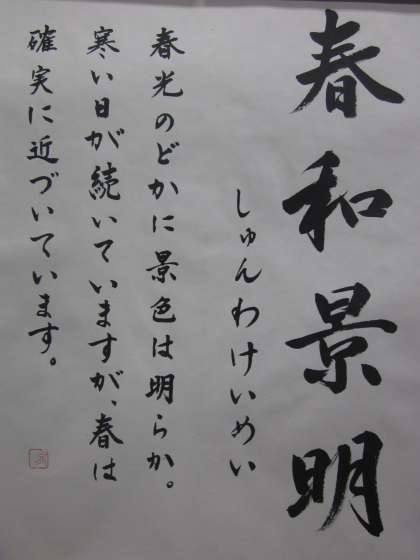 春和景明
しゅんわけいめい
春光のどかに景色は明らか。
寒い日が続いていますが、春は
確実に近づいています。